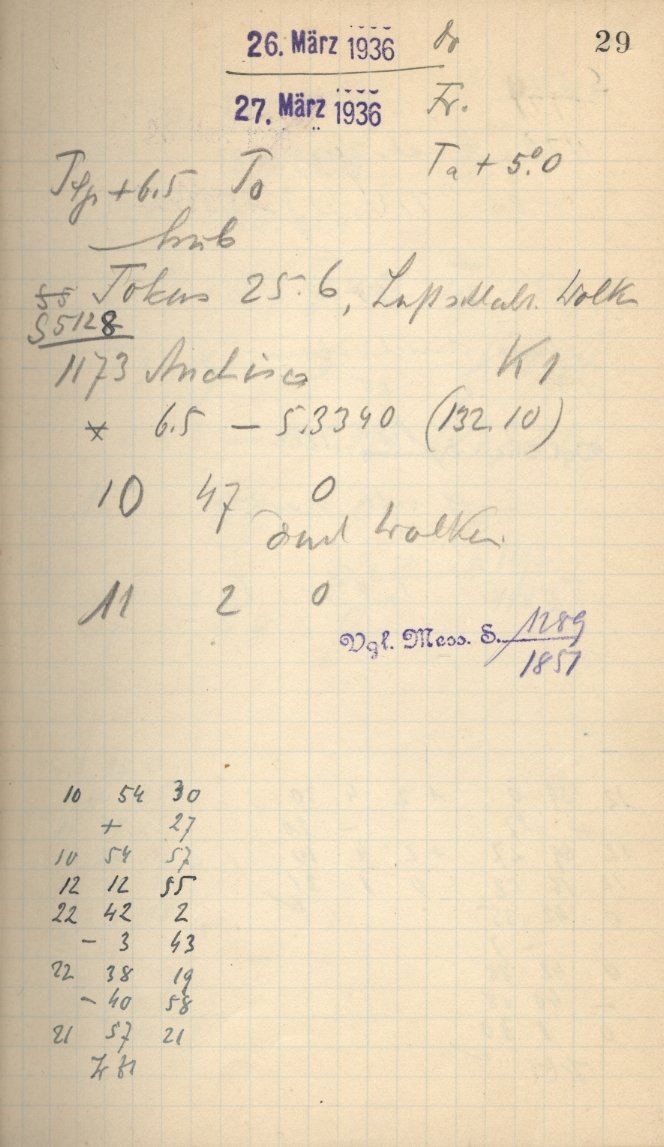 29
26. März 1936 Do
27. März 1936 Fr.
Ta + 5.°0
+ 6.5 To
trüb
Fokus 25.6, Wolk
S5128
1173 Anchises K1
* 6.5 - 5.3340 (132.10)
10 47 0
dud Wolken
11 2 0
Vgl. Mess. S. 1289
1857
10 54 30
+ 27
10 54 57
12 12 55
22 42 2
- 3 43
22 38 19
- 40 58
21 57 21